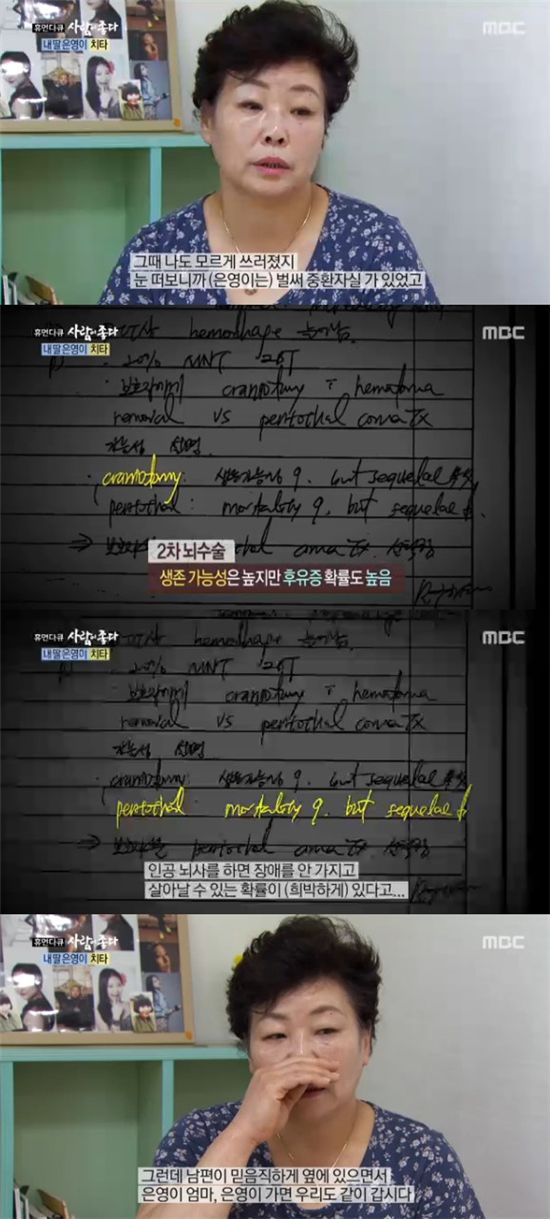 휴먼다큐 사람이 좋다
내 딸 은영이 치타
MBC
그때 나도 모르게 쓰러졌지
눈 떠보니까 (은영이는) 벌써 중환자실 가 있었고
휴먼다큐 사람이 좋다
내 딸 은영이 치타
MBC
20%
craniotomy hematoma
removal vs pentothal coma Tx
가능성 설명
craniotomy: but sequelae
pentothal: mortality but sequelae
⇒ coma Tx
2차 뇌수술
생존 가능성은 높지만 후유증 확률도 높음
휴먼다큐 사람이 좋다
내 딸 은영이 치타
MBC
20%
craniotomy hematoma
removal vs pentothal coma Tx
가능성 설명
craniotomy: but sequelae
pentothal: mortality but sequelae
⇒ pentothal coma Tx
인공 뇌사를 하면 장애를 안 가지고
살아날 수 있는 확률이 (희박하게) 있다고...
휴먼다큐 사람이 좋다
내 딸 은영이 치타
MBC
그런데 남편이 믿음직하게 옆에 있으면서
은영이 엄마, 은영이 가면 우리도 같이 갑시다